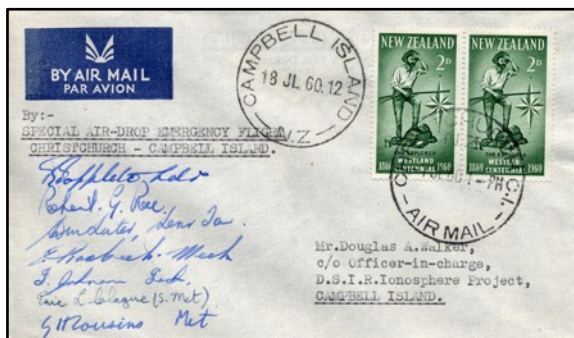 BY AIR MAIL
PAR AVION
CAMPBELL ISLAND
18 JL 60.12
N.Z
NEW ZEALAND
2D
THE EXPLORER
WESTLAND
CENTENNIAL
1860 1960
NEW ZEALAND
2D
WESTLAND
CENTENNIAL
1860 1960
AIR MAIL
By:-
SPECIAL AIR-DROP EMERGENCY FLIGHT
CHRISTCHURCH - CAMPBELL ISLAND.
Robert G. Rae.
Mech
J. Johnson Tech.
Eric L. Clague (S. Met)
Cousins Met
Mr.Douglas A.Walker,
c/o Officer-in-charge,
D.S.I.R.Ionosphere Project,
CAMPBELL ISLAND.